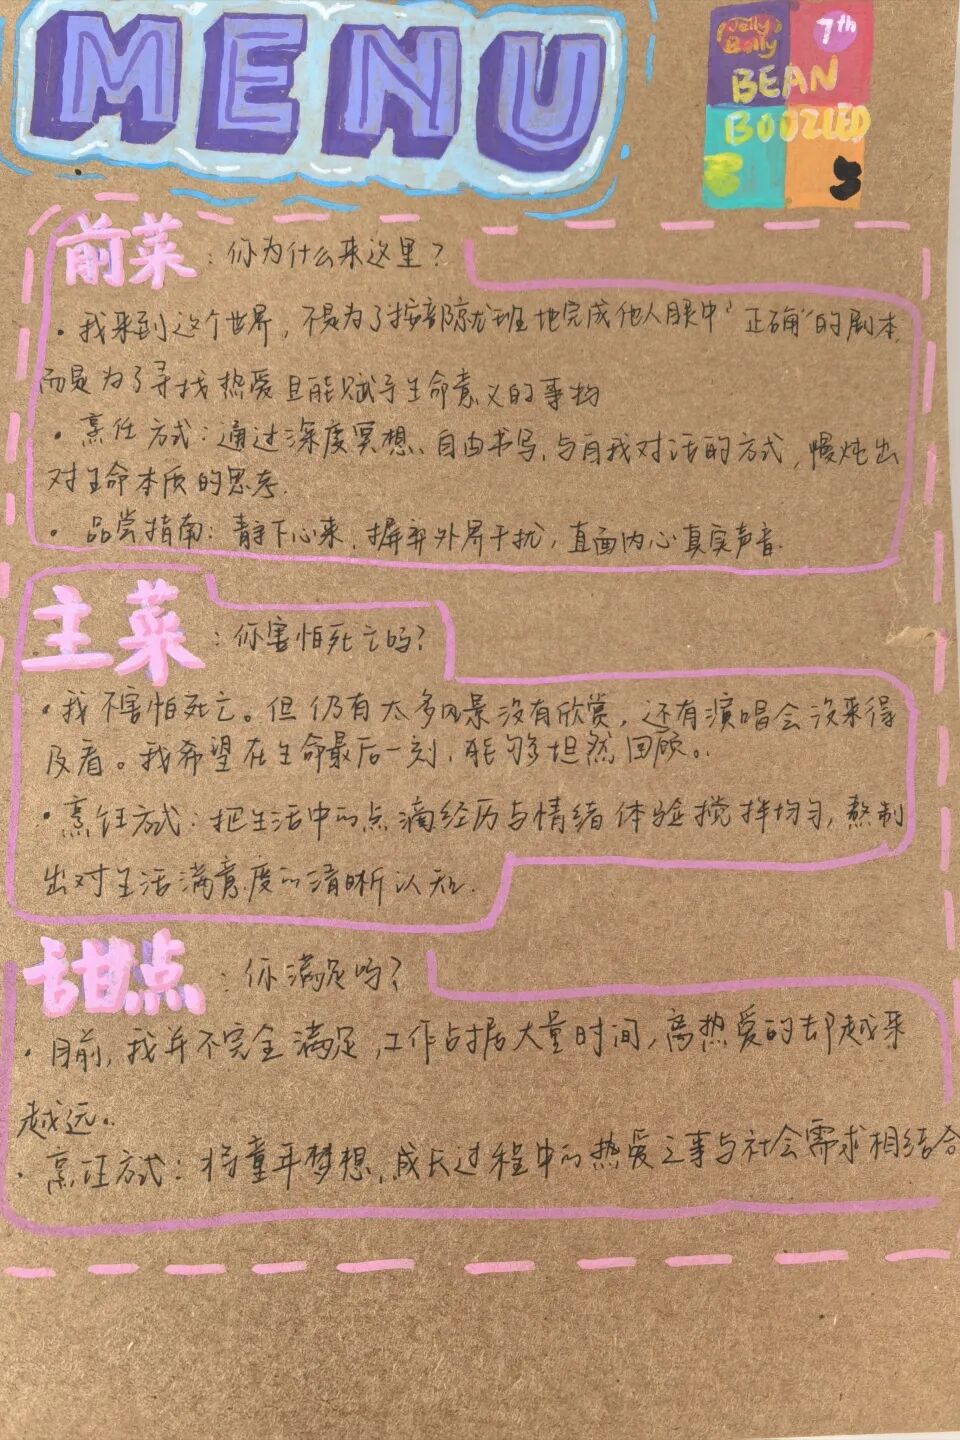 MENU
Jelly Belly
7th
BEAN
BOOZLED
前菜：你为什么来这里？
·我来到这个世界，不是为了按部就班地完成他人眼中"正确"的剧本，
而是为了寻找热爱且能赋予生命意义的事物
·烹饪方式：通过深度冥想、自由书写，与自我对话的方式，慢炖出
对生命本质的思考.
·品尝指南：静下心来，摒弃外界干扰，直面内心真实声音.
主菜：你害怕死亡吗？
·我不害怕死亡。但仍有太多风景没有欣赏，还有演唱会没来得
及看。我希望在生命最后一刻，能够坦然回顾。
·烹饪方式：把生活中的点滴经历与情绪体验搅拌均匀，熬制
出对生活满意度的清晰认知.
甜点：你满足吗？
·目前，我并不完全满足，工作占据大量时间，离热爱的却越来
越远。
·烹饪方式：将童年梦想，成长过程中的热爱之事与社会需求相结合